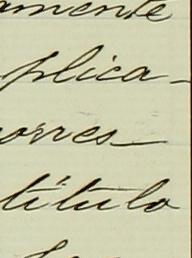 amente
plica-
orres-
titulo